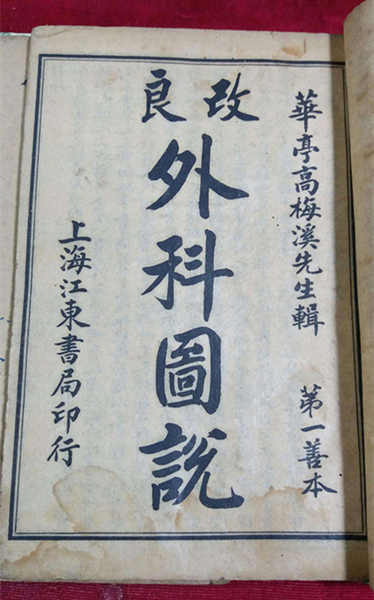 改良
華亭高梅溪先生輯 第一善本
外科圖說
上海江東書局印行